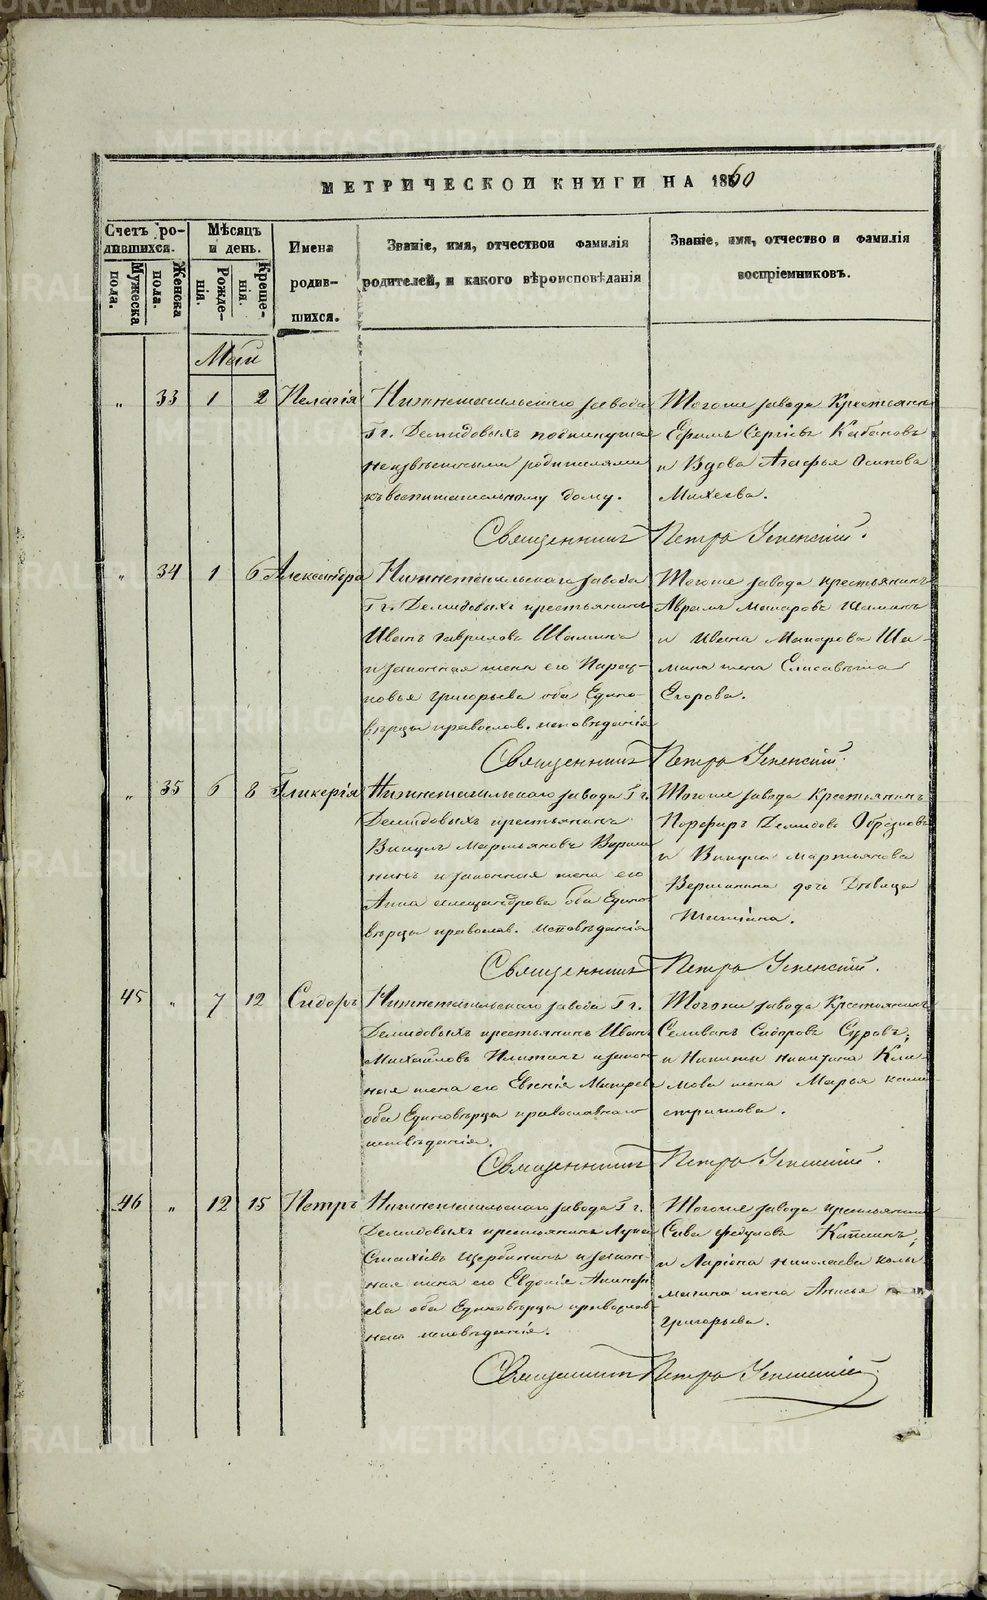 МЕТРИЧЕСКОЙ КНИГИ НА 1860
Счетъ ро-
дившихся.
Мужеска
пола.
Женска
пола.
Мѣсяцъ
и день.
Рожде-
нія.
Креще-
нія.
Имена
родив-
шихся.
Званіе, имя, отчествои фамилія
родителей, и какого вѣроисповѣданія
Званіе, имя, отчество и фамилія
воспріемниковъ.
Май
„ 33 1 2 Пелагія
Нижнетагильскаго завода
Гг. Демидовыхъ подкинутая
неизвѣстными родителями
къ воспитательному дому.
Тогоже завода Крестьянинъ
Ефимъ Сергіевъ Кабановъ
и Вдова Агафья Осипова
Михеева.
Священникъ Петръ Успенскій.
„ 34 1 6 Александра
Нижнетагильскаго завода
Гг. Демидовыхъ крестьянинъ
Иванъ Гавриловъ Шаминъ
и законная жена его Парас-
ковья Григорьева оба Едино-
вѣрцы православ. исповѣданія
Тогоже завода крестьянинъ
Аврамъ Макаровъ Шаминъ
и Ивана Макарова Ша-
мина жена Елисавѣта
Егорова.
Священникъ Петръ Успенскій.
„ 35 6 8 Гликерія
Нижнетагильскаго завода Гг.
Демидовыхъ крестьянинъ
Викулъ Мартьяновъ Верши-
нинъ и законная жена его
Анна Александрова оба Едино-
вѣрцы православ. исповѣданія
Тогоже завода Крестьянинъ
Порфиръ Демидовъ Обрезковъ
и Викула Мартьянова
Вершинина дочь Дѣвица
Татіана.
Священникъ Петръ Успенскій.
45 „ 7 12 Сидоръ
Нижнетагильскаго завода Гг.
Демидовыхъ крестьянинъ Иванъ
Михайловъ и закон-
ная жена его Евгенія
оба Единовѣрцы православнаго
исповѣданія.
Тогоже завода Крестьянинъ
Селиванъ Сидоровъ Суровъ,
и Никиты Никитина Кли-
мова жена Марья Кали-
стратова.
Священникъ Петръ Успенскій.
46 „ 12 15 Петръ
Нижнетагильскаго завода Гг.
Демидовыхъ крестьянинъ Лука
Щербининъ и закон-
ная жена его Евдокія
оба Единовѣрцы православ-
наго исповѣданія.
Тогоже завода крестьянинъ
Сава Федуловъ
и Ларіона Николаева Колы-
магина жена Анисья
Григорьева.
Священникъ Петръ Успенскій.
METRIKI.GASO-URAL.RU